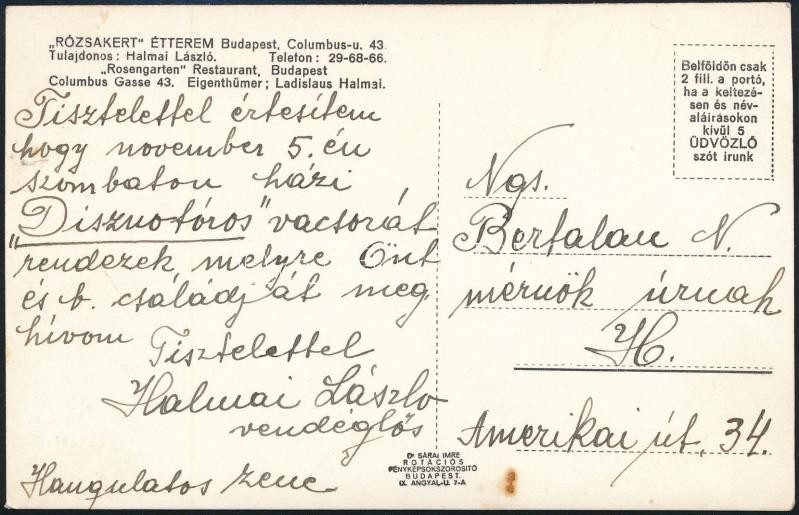 „RÓZSAKERT" ÉTTEREM Budapest, Columbus-u. 43.
Tulajdonos: Halmai László. Telefon: 29-68-66.
„Rosengarten" Restaurant, Budapest
Columbus Gasse 43. Eigenthümer; Ladislaus Halmai.
Tisztelettel értesítem
hogy november 5.-én
szombaton házi
„Disznotóros" vacsorát
rendezek, melyre Önt
és b. családját meg
hívom
Tisztelettel
Halmai László
vendéglős
Hangulatos zene
Belföldön csak
2 fill. a portó,
ha a keltezé-
sen és név-
aláirásokon
kivül 5
ÜDVÖZLŐ
szót irunk
Ngs.
Bertalan N.
mérnök úrnak
H.
Amerikai út. 34.
Dr SÁRAI IMRE
ROTÁCIÓS
FÉNYKÉPSOKSZOROSITÓ
BUDAPEST.
IX. ANGYAL-U. 7-A